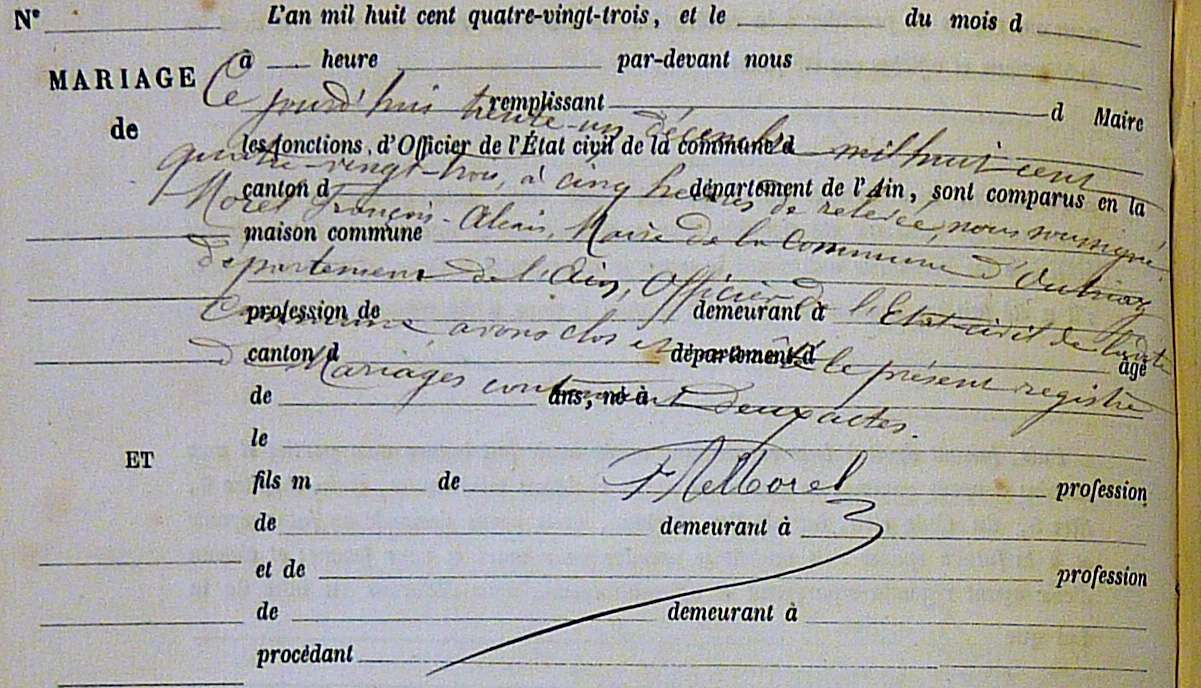 N° L'an mil huit cent quatre-vingt-trois, et le du mois d
à heure par-devant nous
MARIAGE
remplissant d Maire
de
les fonctions, d'Officier de l'État civil de la commune d
canton d département de l'Ain, sont comparus en la
maison commune
profession de demeurant à
canton d département d âgé
de ans, né à
le
ET
fils m de profession
de demeurant à
et de profession
de demeurant à
procédant
Ce jourd'hui trente-un décembre mil huit cent
quatre-vingt-trois, à cinq heures de relevée, nous soussigné
Morel François-Alexis, Maire de la Commune d'
département de l'Ain, Officier de l'Etat-civil de ladite
Commune, avons clos et arrêté le présent registre
de Mariages contenant deux actes.
F Morel